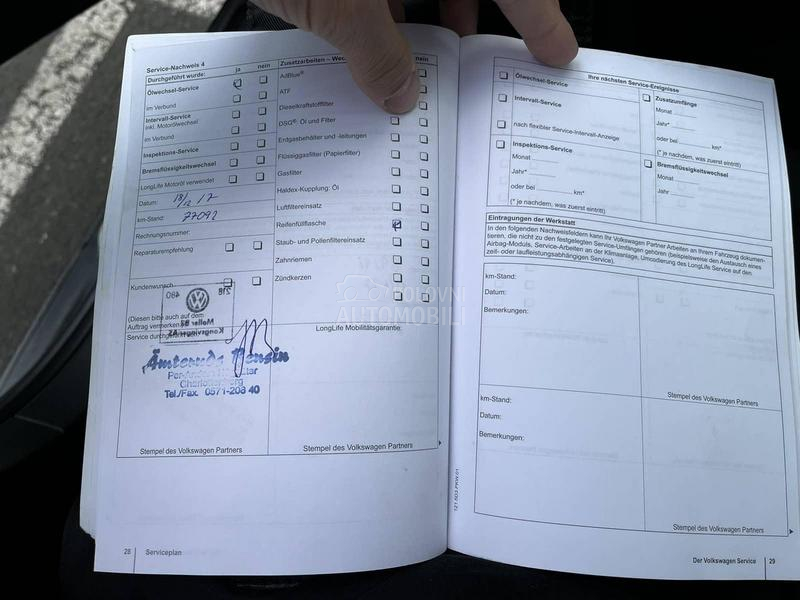 Service-Nachweis 4
Durchgeführt wurde:
ja
nein
Ölwechsel-Service
im Verbund
Intervall-Service
inkl. Motorölwechsel
im Verbund
Inspektions-Service
Bremsflüssigkeitswechsel
LongLife Motoröl verwendet
Datum:
km-Stand:
77092
Rechnungsnummer:
Reparaturempfehlung
Kundenwunsch
(Diesen bitte auch auf dem
Auftrag vermerken.)
Service durchgeführt:
Åmteruds Bensin
Charlottenberg
Tel./Fax. 0571-208 40
Stempel des Volkswagen Partners
Zusatzarbeiten –
nein
AdBlue®
ATF
Dieselkraftstofffilter
DSG®: Öl und Filter
Erdgasbehälter und -leitungen
Flüssiggasfilter (Papierfilter)
Gasfilter
Haldex-Kupplung: Öl
Luftfiltereinsatz
Reifenfüllflasche
Staub- und Pollenfiltereinsatz
Zahnriemen
Zündkerzen
LongLife Mobilitätsgarantie:
Stempel des Volkswagen Partners
28
Serviceplan
POLOVNI
AUTOMOBILI
Ihre nächsten Service-Ereignisse
Ölwechsel-Service
Intervall-Service
nach flexibler Service-Intervall-Anzeige
Inspektions-Service
Monat
Jahr*
oder bei km*
(* je nachdem, was zuerst eintritt)
Zusatzumfänge
Monat
Jahr*
oder bei km*
(* je nachdem, was zuerst eintritt)
Bremsflüssigkeitswechsel
Monat
Jahr
Eintragungen der Werkstatt
In den folgenden Nachweisfeldern kann Ihr Volkswagen Partner Arbeiten an Ihrem Fahrzeug dokumen-
tieren, die nicht zu den festgelegten Service-Umfängen gehören (beispielsweise den Austausch eines
Airbag-Moduls, Service-Arbeiten an der Klimaanlage, Umcodierung des LongLife Service auf den
zeit- oder laufleistungsabhängigen Service).
km-Stand:
Datum:
Bemerkungen:
Stempel des Volkswagen Partners
km-Stand:
Datum:
Bemerkungen:
Stempel des Volkswagen Partners
121.5G3.PKW.01
Der Volkswagen Service
29